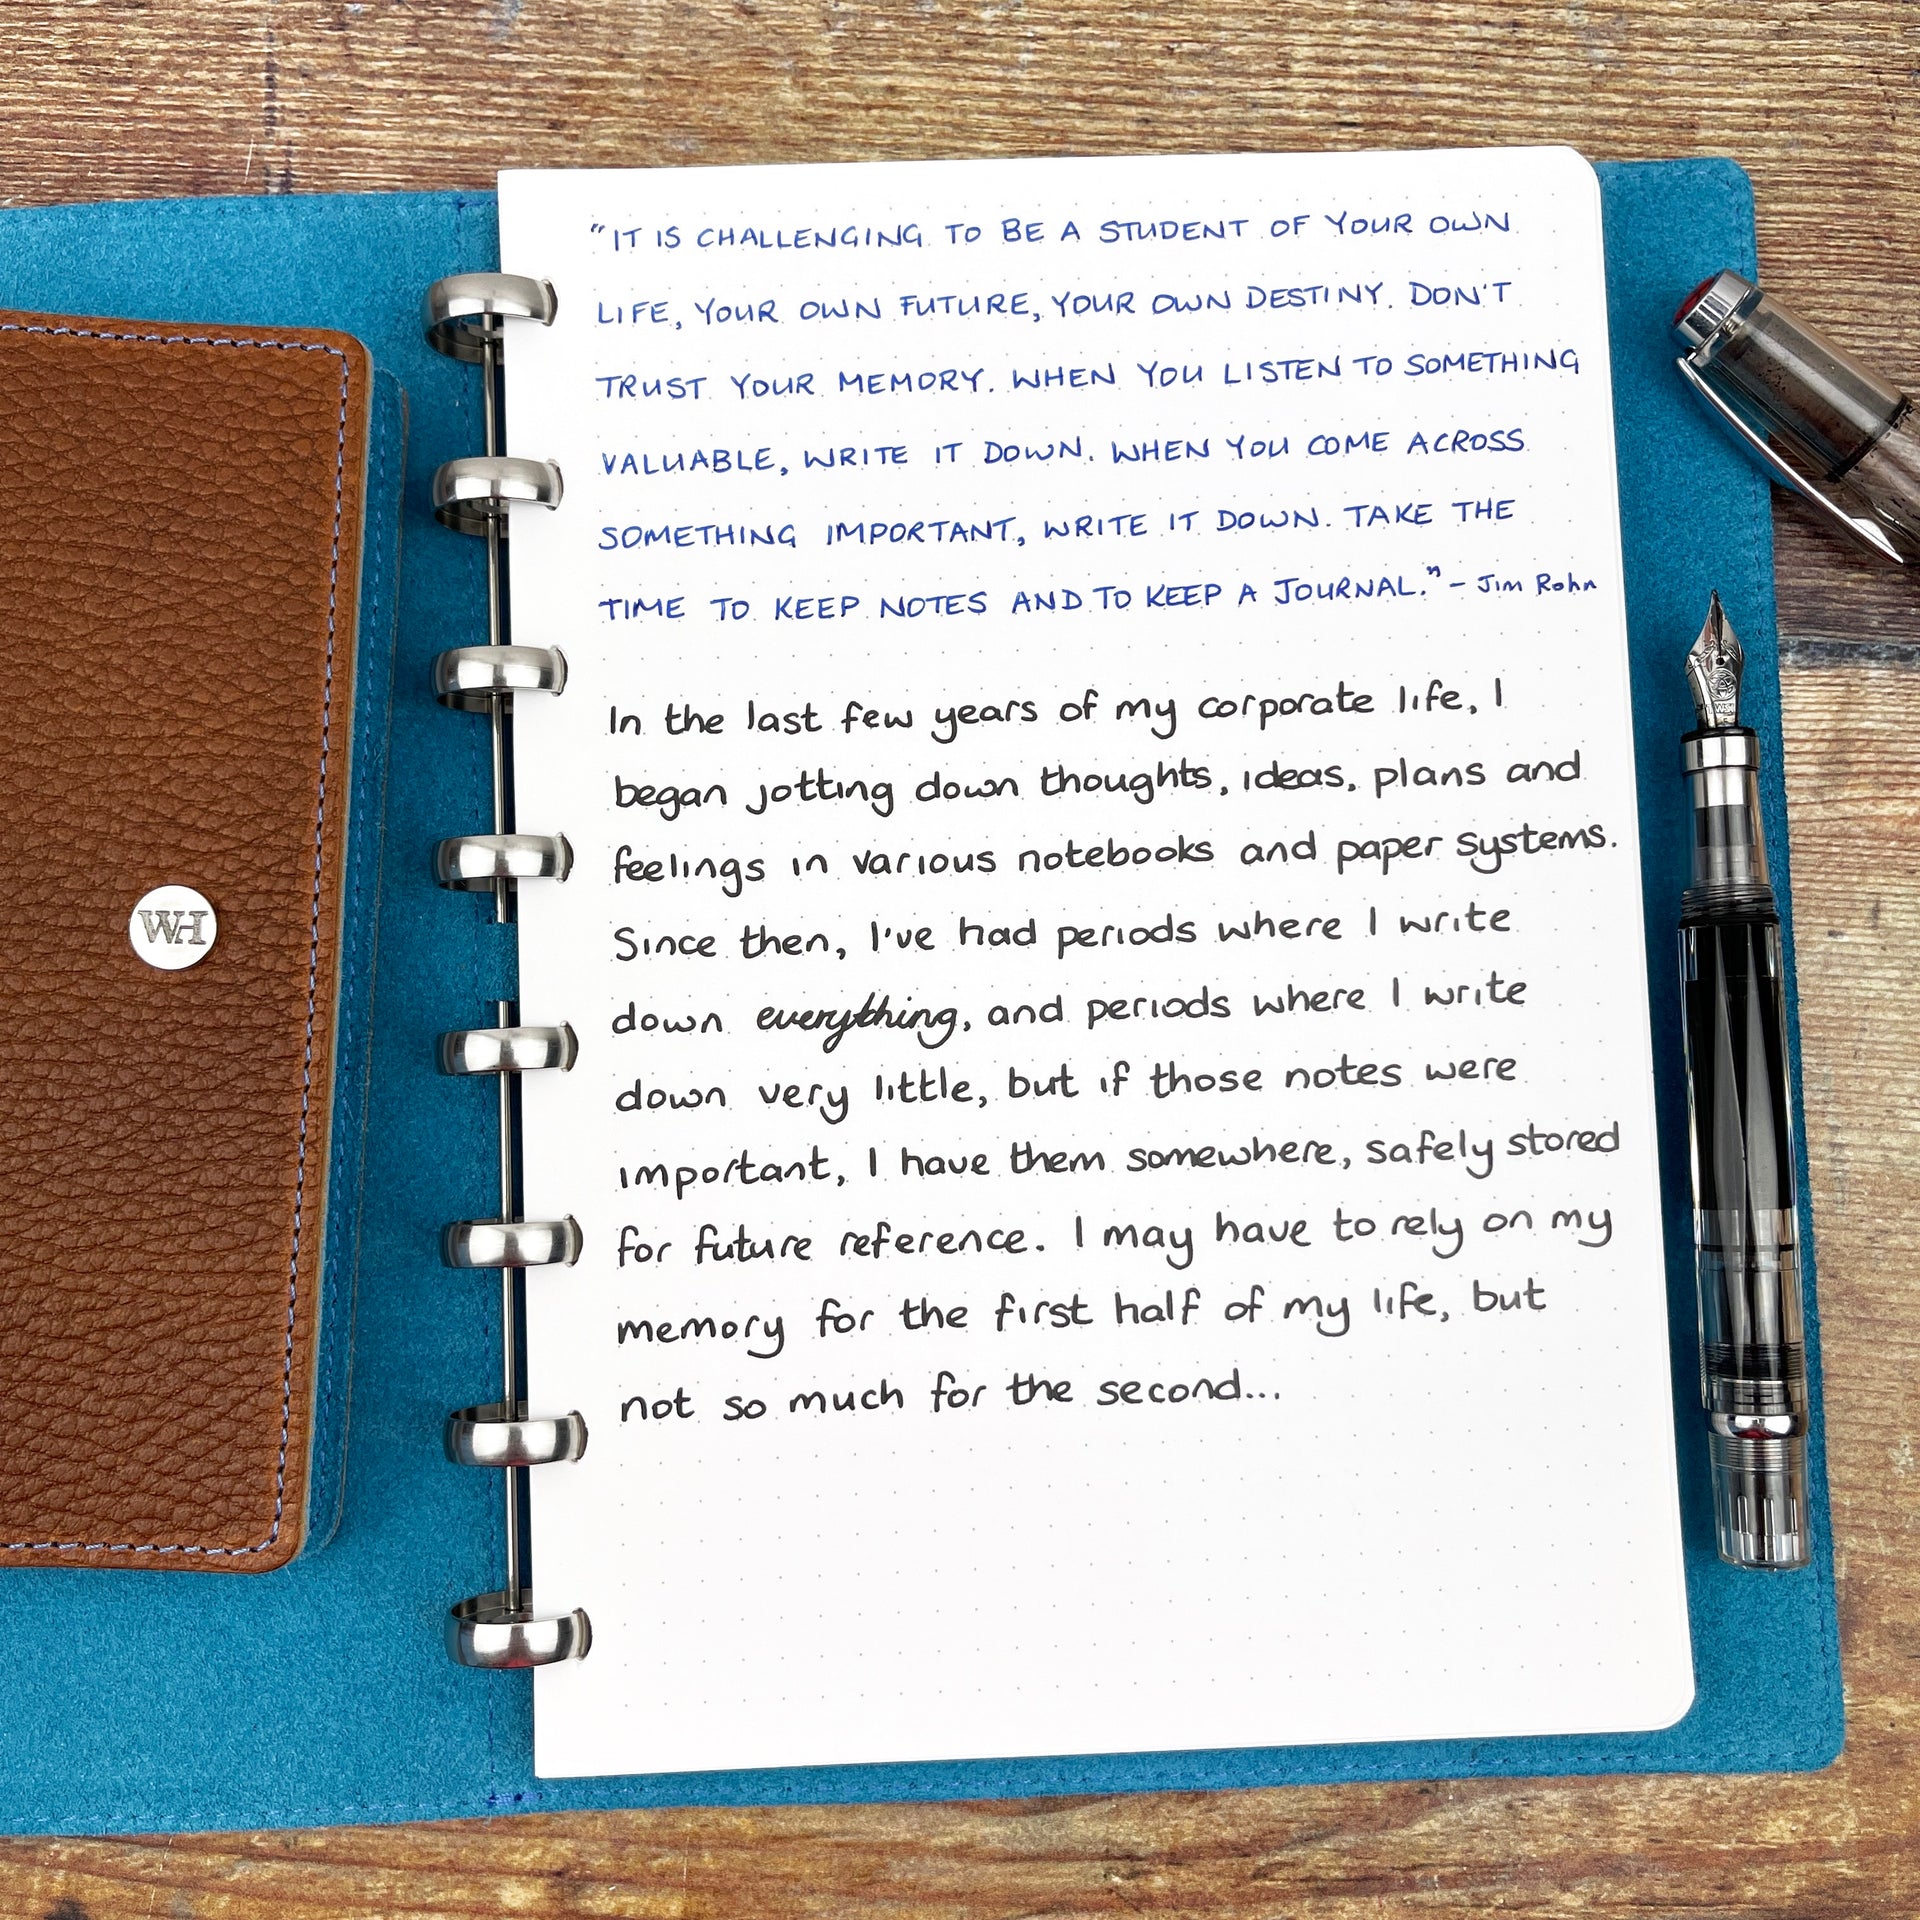 "IT IS CHALLENGING TO BE A STUDENT OF YOUR OWN
LIFE, YOUR OWN FUTURE, YOUR OWN DESTINY. DON'T
TRUST YOUR MEMORY. WHEN YOU LISTEN TO SOMETHING
VALUABLE, WRITE IT DOWN. WHEN YOU COME ACROSS
SOMETHING IMPORTANT, WRITE IT DOWN. TAKE THE
TIME TO KEEP NOTES AND TO KEEP A JOURNAL." - Jim Rohn
In the last few years of my corporate life, I
began jotting down thoughts, ideas, plans and
feelings in various notebooks and paper systems.
Since then, I've had periods where I write
down everything, and periods where I write
down very little, but if those notes were
important, I have them somewhere, safely stored
for future reference. I may have to rely on my
memory for the first half of my life, but
not so much for the second...
WH